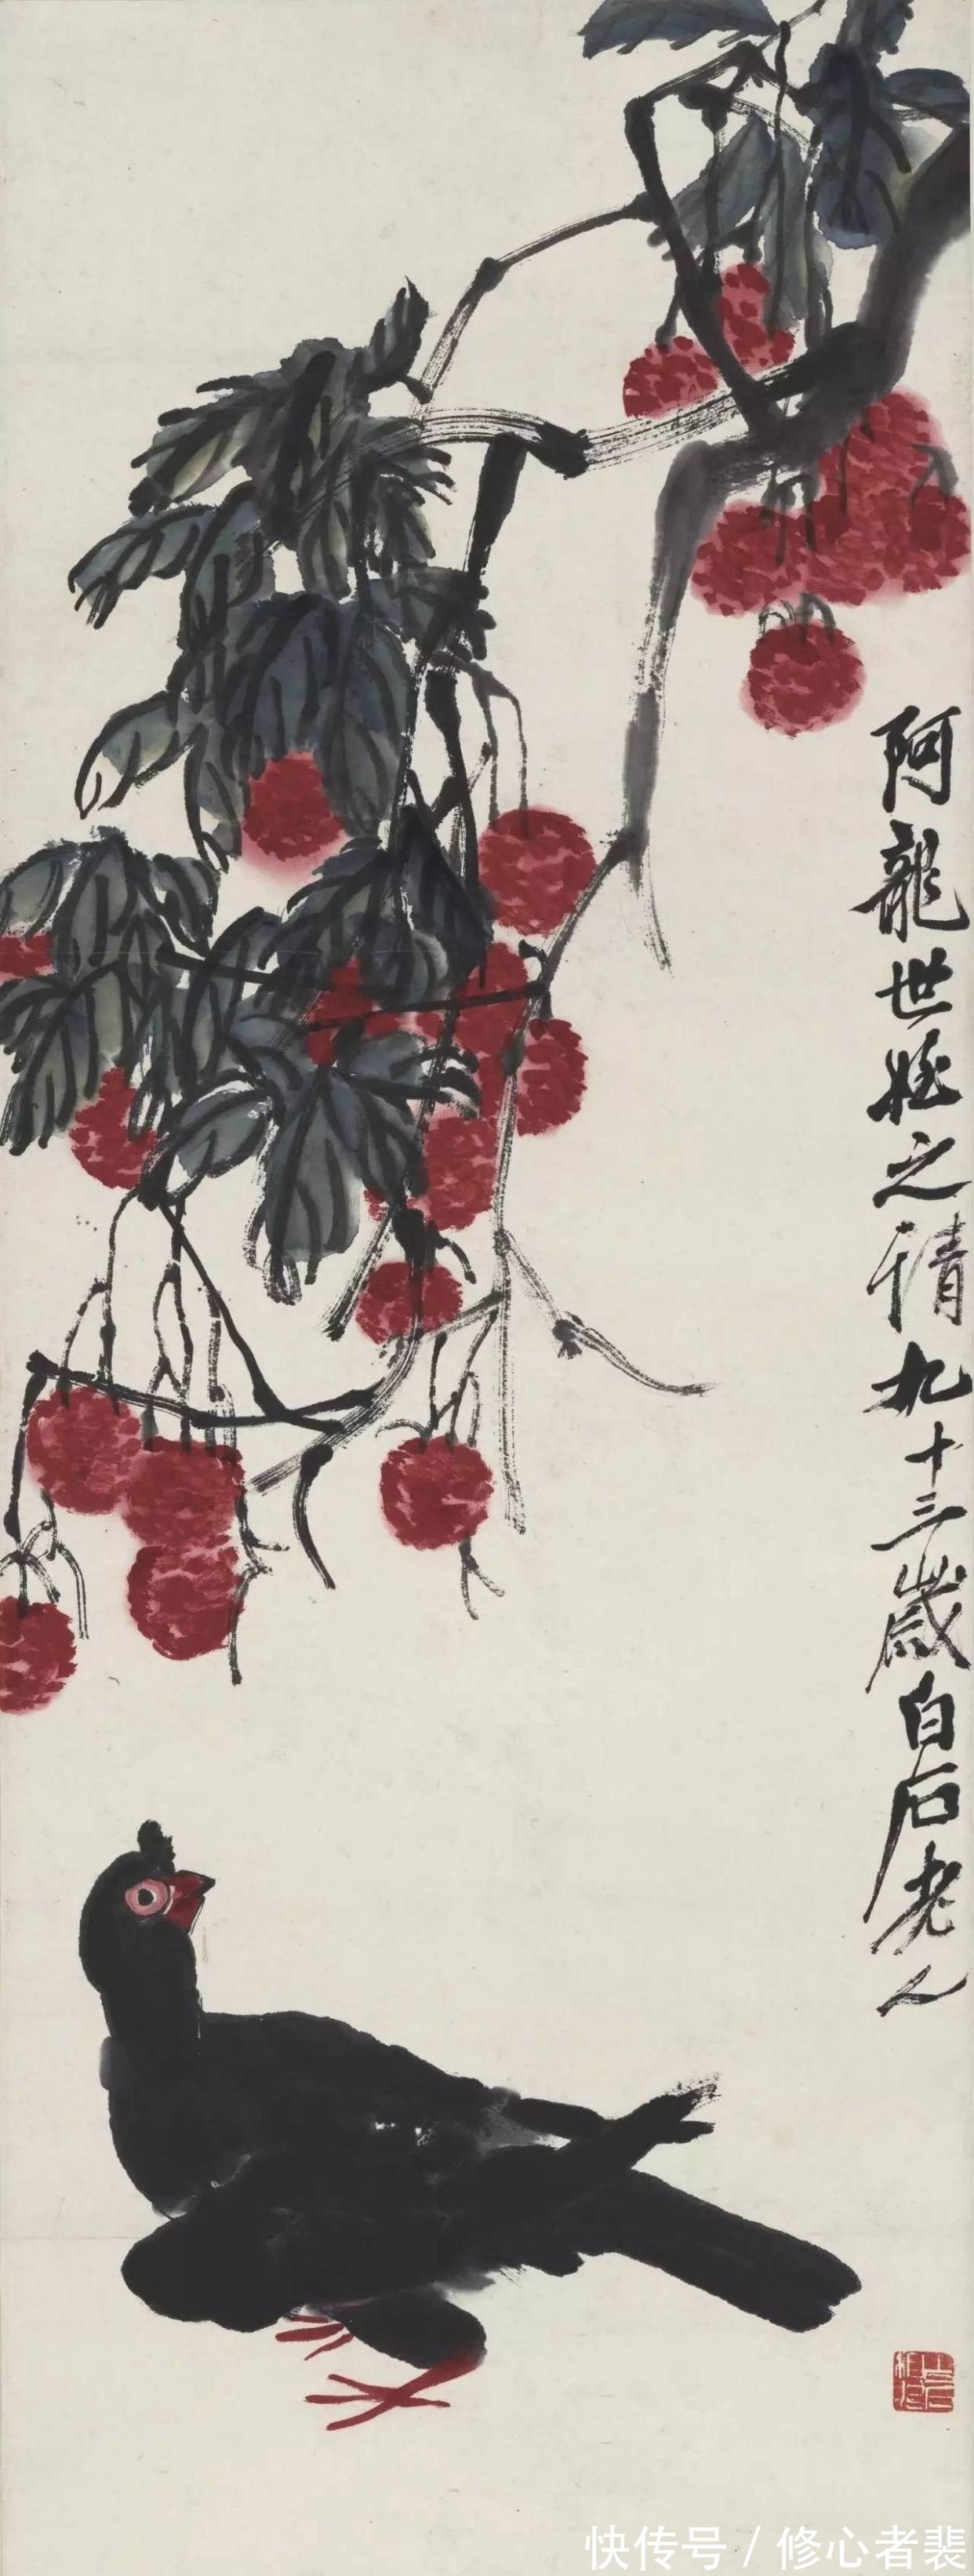 阿龍世姪之請九十三歲白石老人
快传号 / 修心者裴